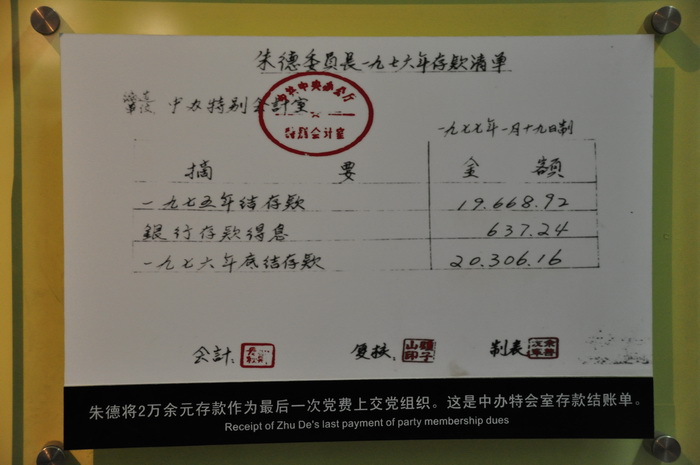 朱德委員長一九七六年存款清单
中办特别会計室
中共中央办公厅
特别会计室
一九七七年一月十九日制
摘 要 金 額
一九七五年结存款 19.668.92
銀行存款得息 637.24
一九七六年底结存款 20.306.16
会計: 复核: 制表:
朱德将2万余元存款作为最后一次党费上交党组织。这是中办特会室存款结账单。
Receipt of Zhu De's last payment of party membership dues